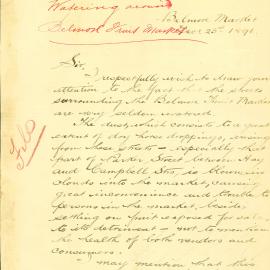 Watering around
Belmore Fruit Market
Belmore Market
Nov 25th 1891
Sir,
I respectfully wish to draw your
attention to the fact that the streets
surrounding the Belmore Fruit Market
are very seldom watered.
The dust which consists to a great
extent of dry horse droppings, arising
from these streets - especially that
part of Parker Street between Hay
and Campbell Sts, is blown in
clouds into the market, causing
great inconvenience and trouble to
persons in the market, besides
settling on fruit exposed for sale
to its detriment - not to mention
the health of both vendors and
consumers.
I may mention that this
File